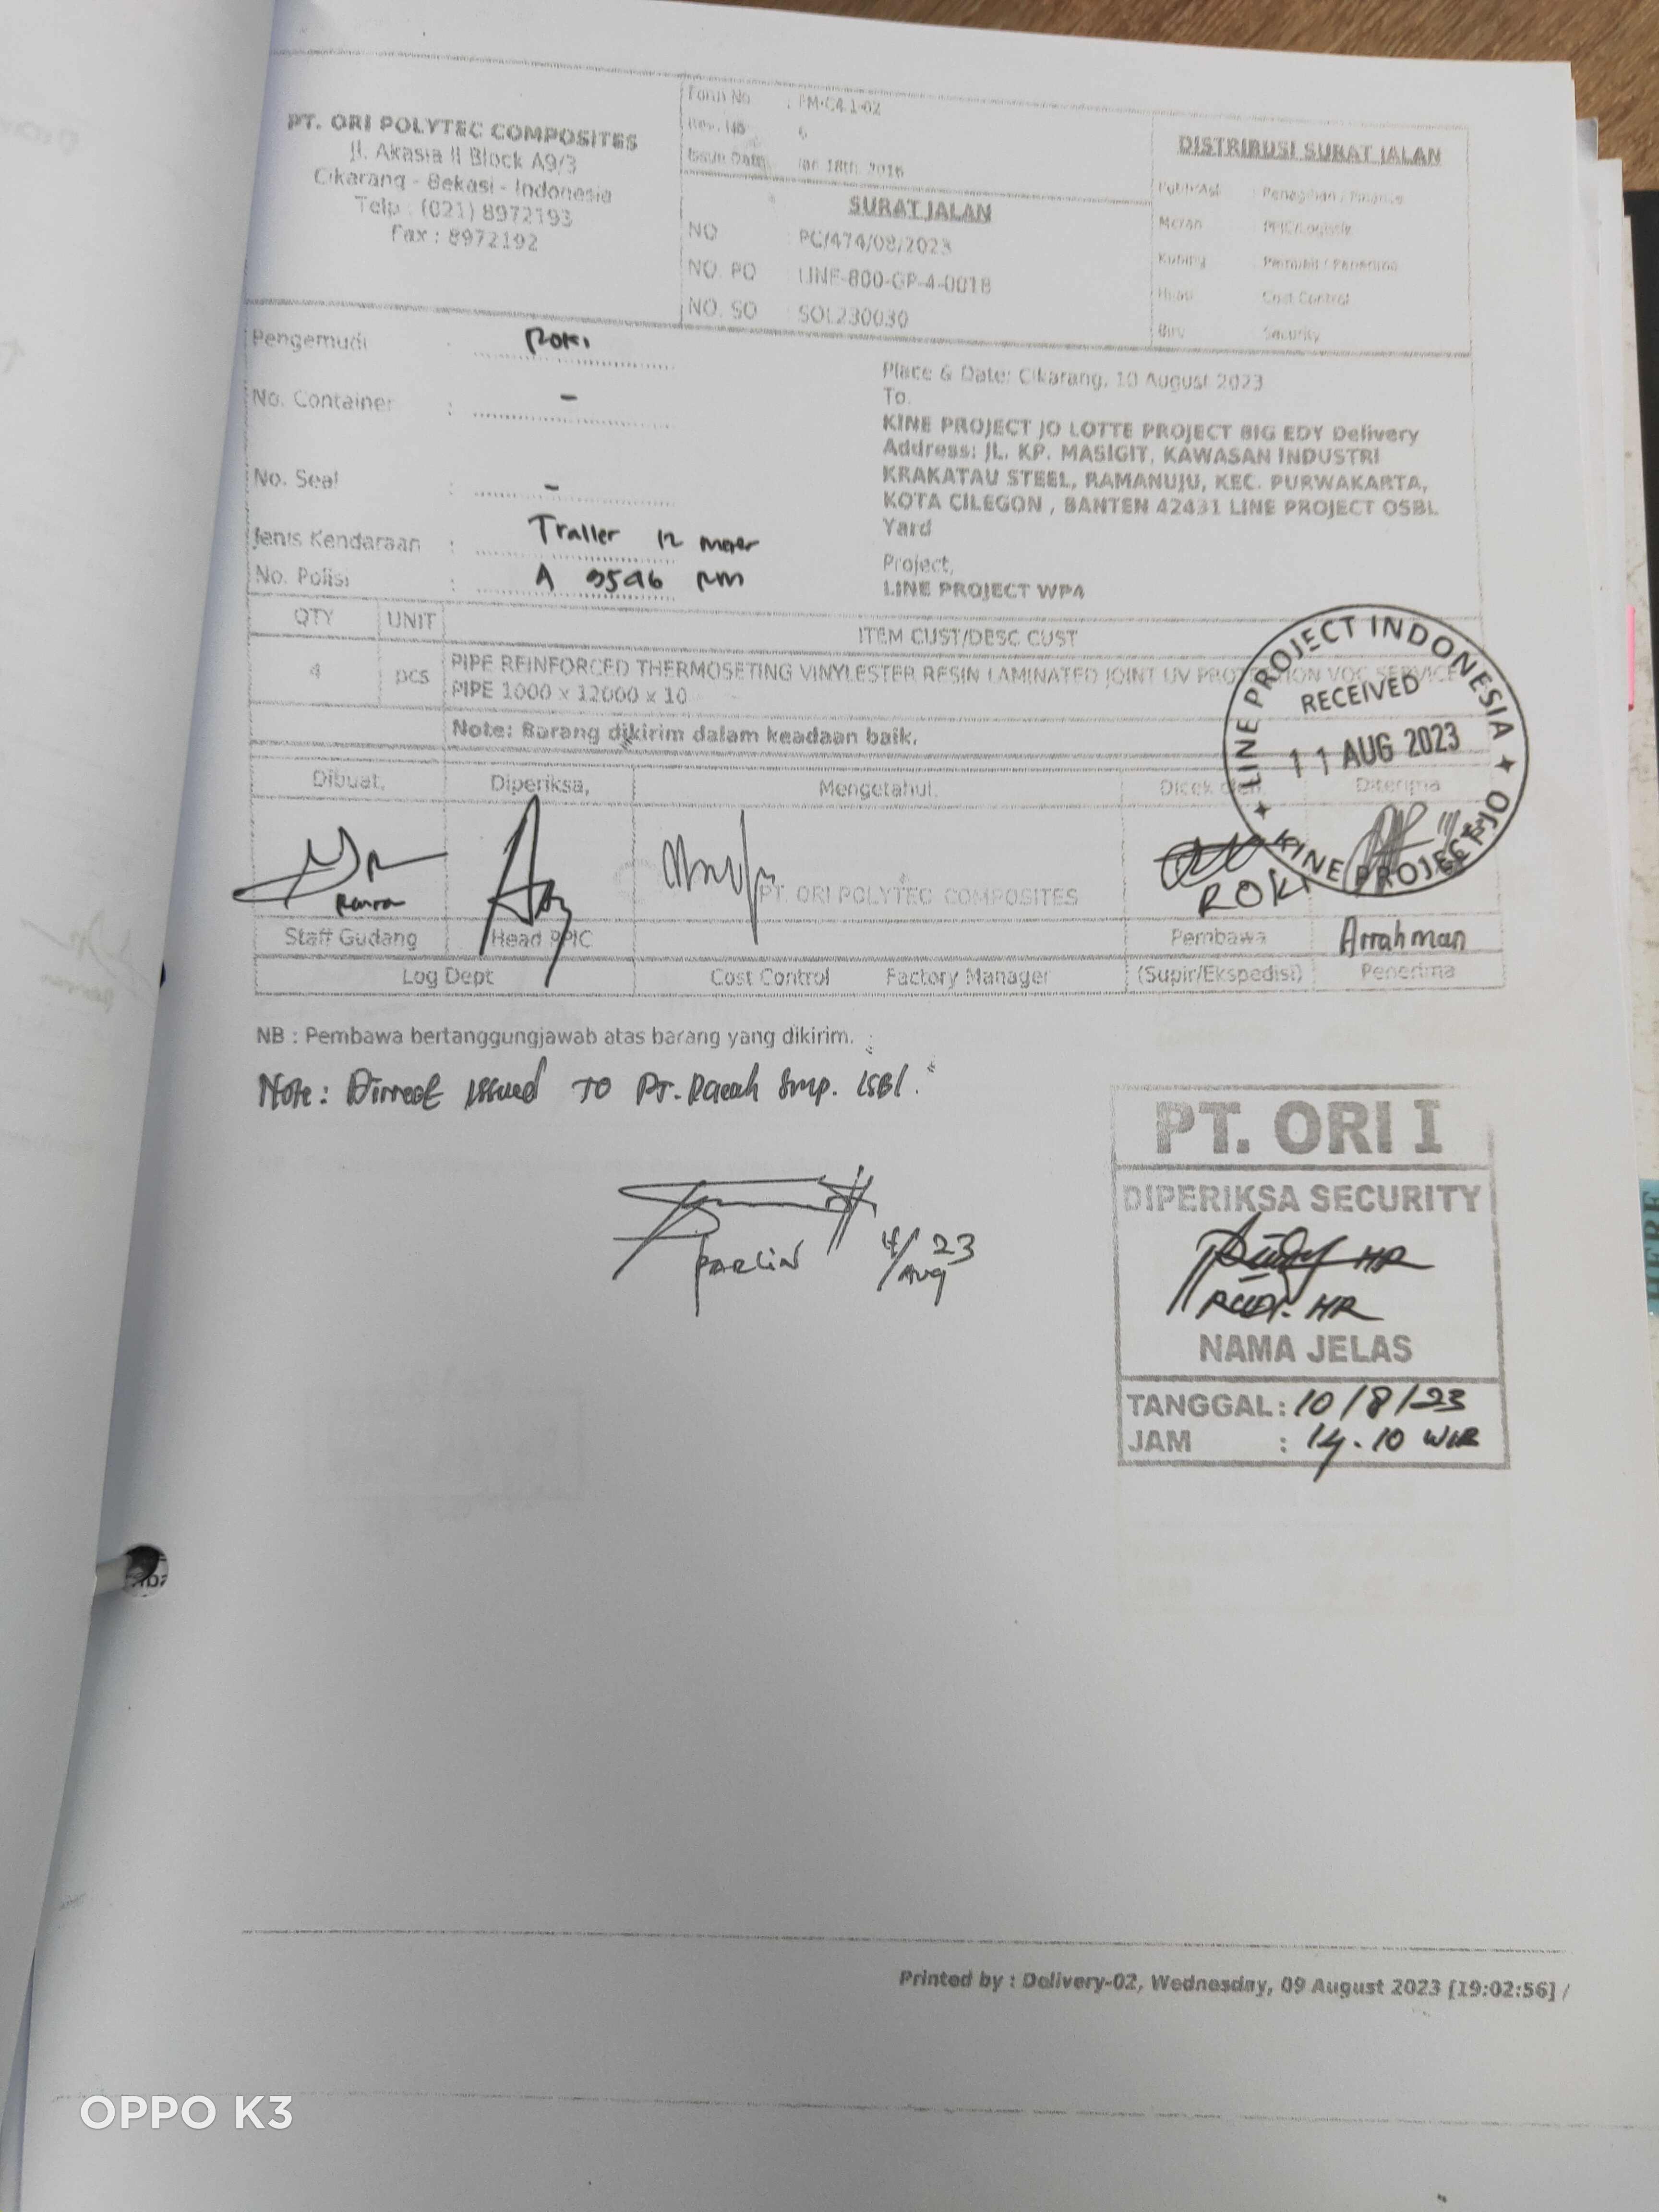 PT. ORI POLYTEC COMPOSITES
Jl. Akasia II Block A9/3
Cikarang - Bekasi - Indonesia
Telp : (021) 8972193
Fax : 8972192
Form No : FM-C4.1-02
Rev. No 6
Issue Date Jan 18th, 2016
SURAT JALAN
NO : PC/474/08/2023
NO. PO : LINE-800-OP-4-0018
NO. SO : SOL230030
DISTRIBUSI SURAT JALAN
Putih/Asli : Penagihan / Finance
Merah PPIC/Logistik
Kuning Pembeli / Penerima
Hijau Cost Control
Biru Security
Pengemudi : Roki
No. Container : -
No. Seal : -
Jenis Kendaraan : Trailer 12 meter
No. Polisi : A
Place & Date: Cikarang, 10 August 2023
To.
KINE PROJECT JO LOTTE PROJECT BIG EDY Delivery
Address: JL. KP. MASIGIT, KAWASAN INDUSTRI
KRAKATAU STEEL, RAMANUJU, KEC. PURWAKARTA,
KOTA CILEGON , BANTEN 42431 LINE PROJECT OSBL
Yard
Project,
LINE PROJECT WP4
QTY UNIT ITEM CUST/DESC CUST
4 pcs PIPE REINFORCED THERMOSETING VINYLESTER RESIN LAMINATED JOINT UV PROTECTION VOC SERVICE
PIPE 1000 x 12000 x 10
Note: Barang dikirim dalam keadaan baik.
LINE PROJECT INDONESIA
RECEIVED
11 AUG 2023
KINE PROJECT JO
Dibuat, Diperiksa, Mengetahui, Dicek oleh, Diterima
PT. ORI POLYTEC COMPOSITES
ROKI
Staff Gudang Head PPIC Pembawa Arrahman
Log Dept Cost Control Factory Manager (Supir/Ekspedisi) Penerima
NB : Pembawa bertanggungjawab atas barang yang dikirim.
Note: Dirrect Issued TO PT.
PARLIN
Aug 23
PT. ORI I
DIPERIKSA SECURITY
RUDI. HR
NAMA JELAS
TANGGAL : 10/8/23
JAM : 14.10 WIB
Printed by : Delivery-02, Wednesday, 09 August 2023 [19:02:56] /
OPPO K3